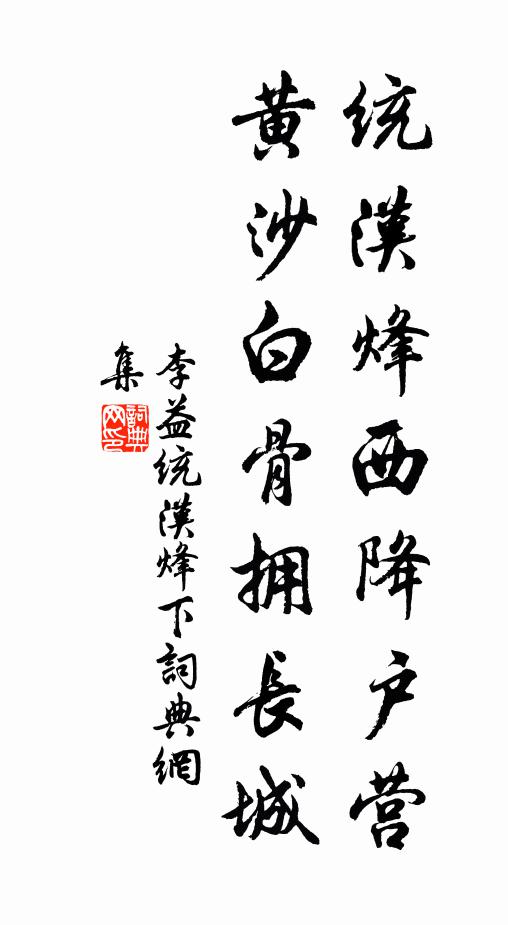 统漢烽西降户营
黄沙白骨拥長城
李益统漢烽下詞典網
集
詞典
网印